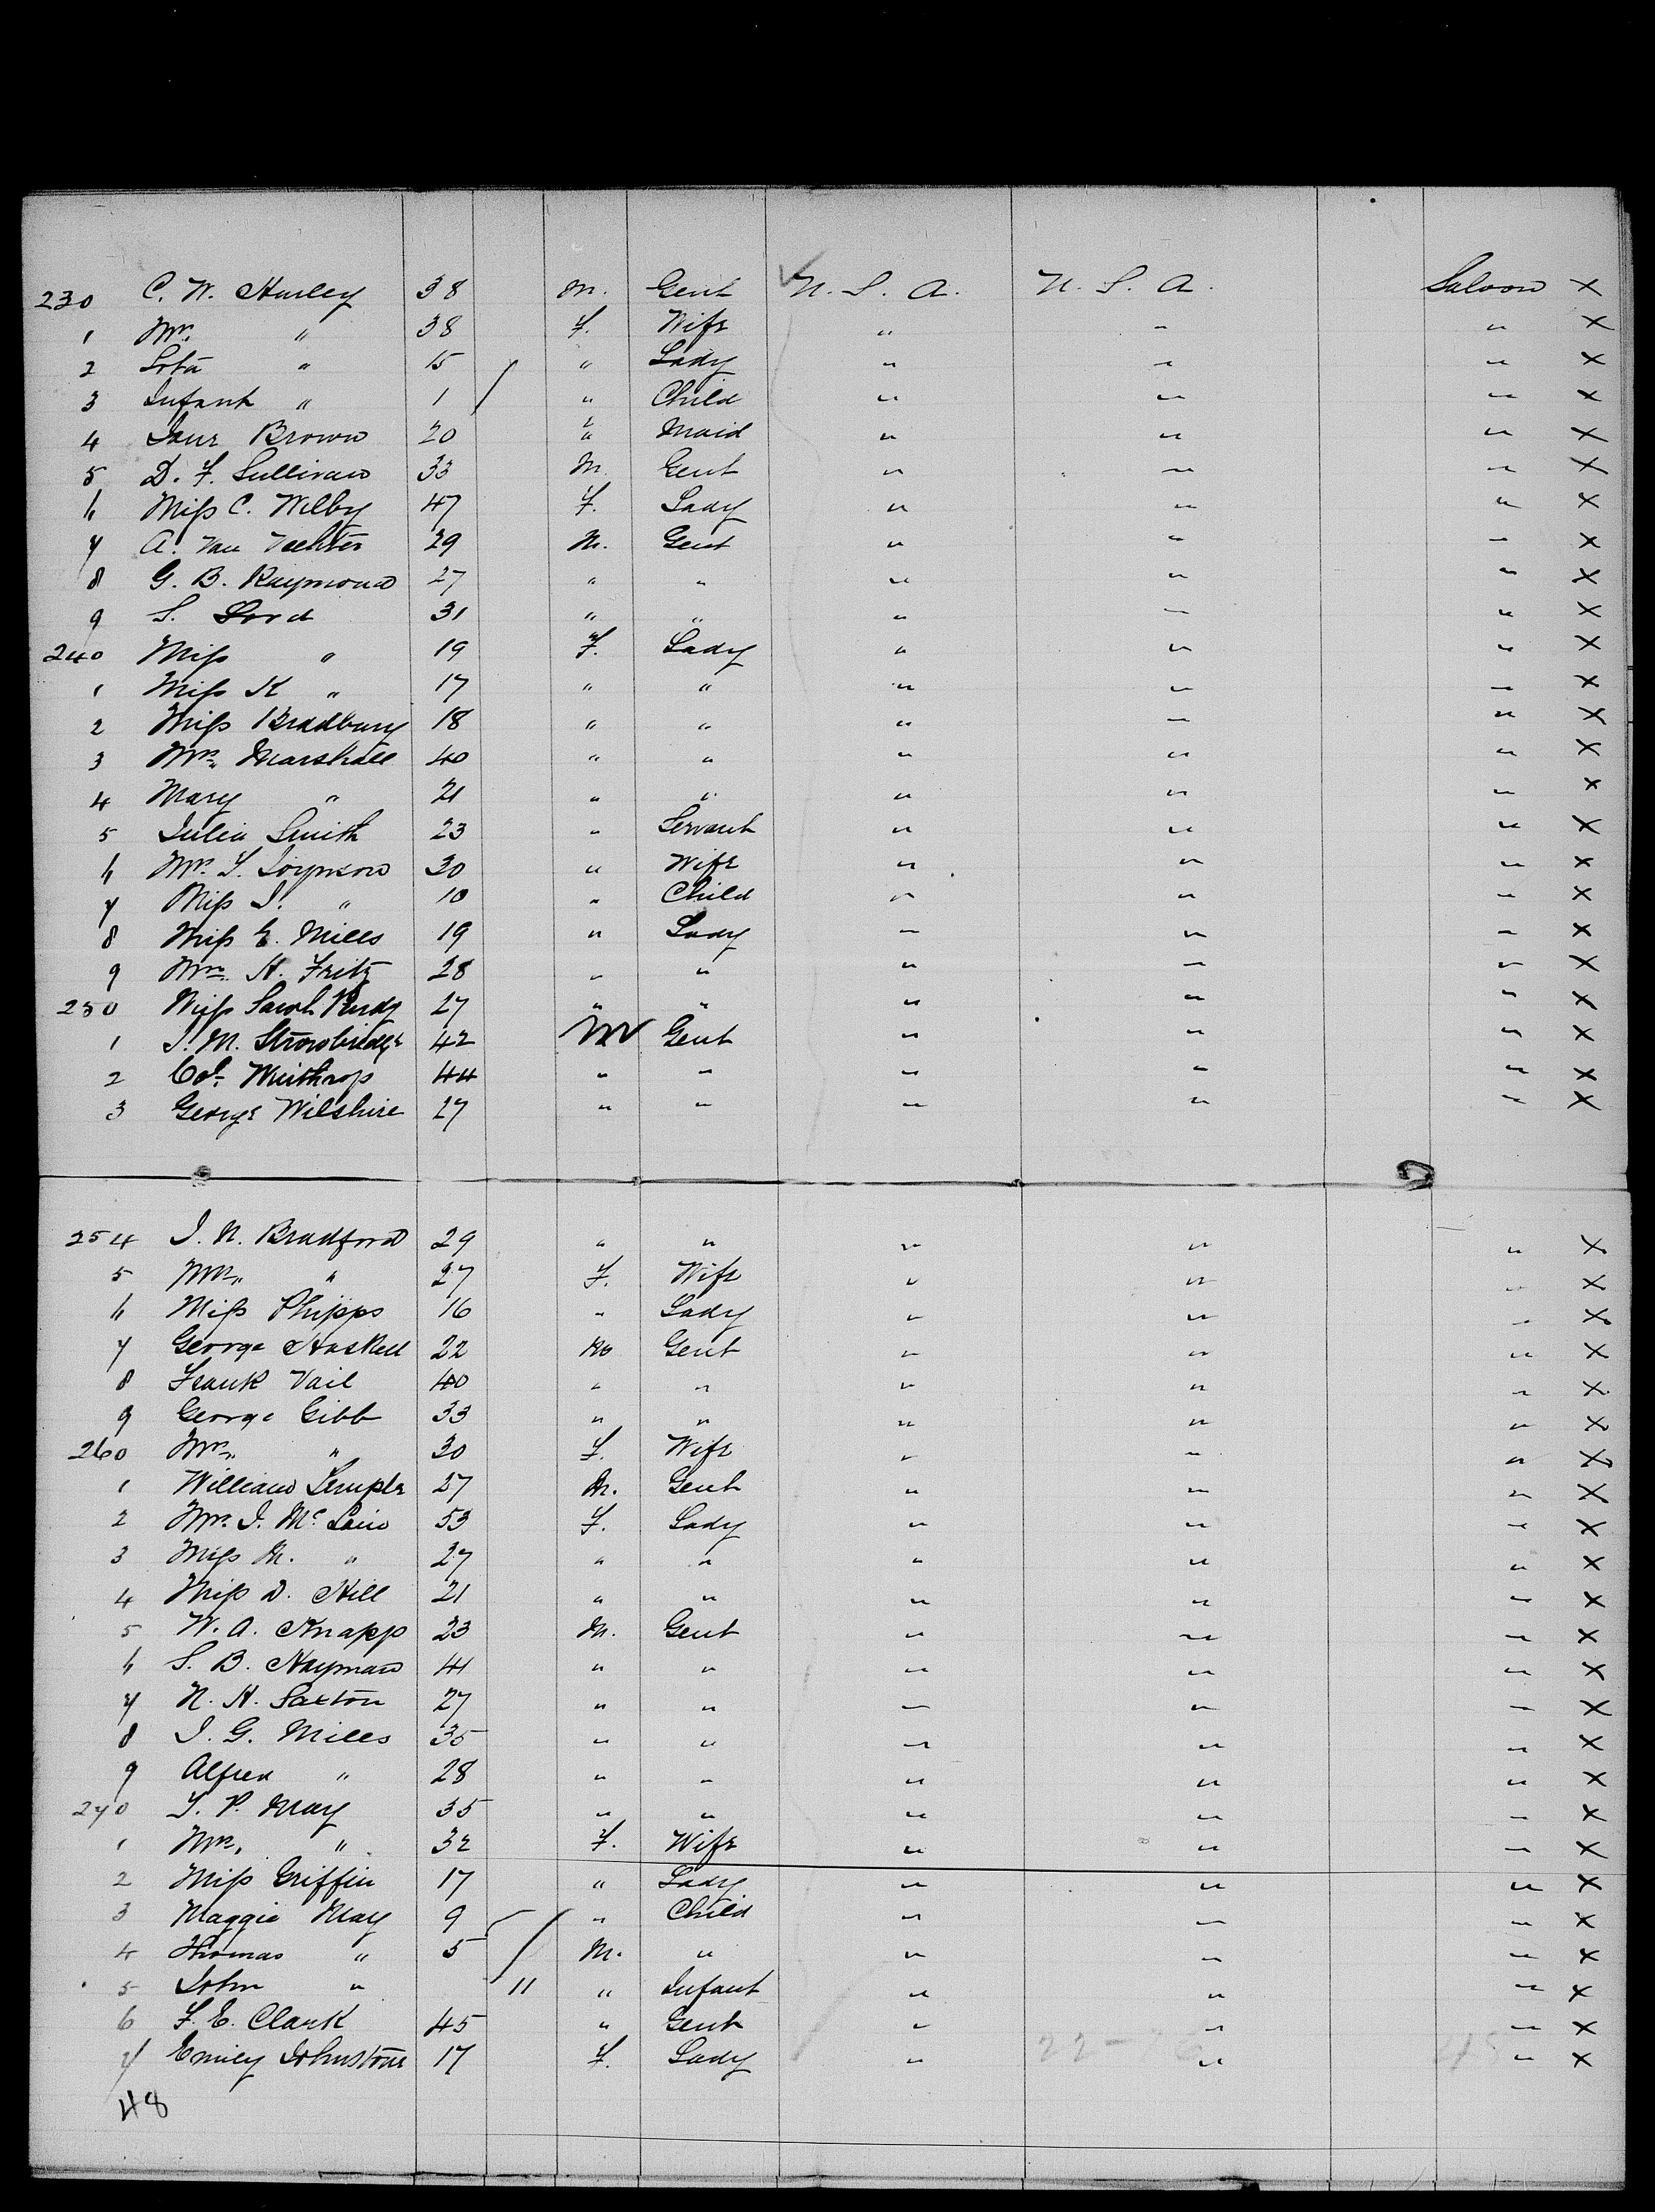 230 C. W. Hurley 38 M. Gent U. S. A. U. S. A. Saloon X
1 Mrs. " 38 F. Wife " " " X
2 Lota " 15 " Lady " " " X
3 Infant " 1 " Child " " " X
4 Jane Brown 20 " Maid " " " X
5 D. F. Sullivan 33 M. Gent " " " X
6 Miss C. Wilby 47 F. Lady " " " X
7 A. Van Vechter 29 M. Gent " " " X
8 G. B. Raymond 27 " " " " " X
9 S. Lord 31 " " " " " X
240 Miss " 19 F. Lady " " " X
1 Miss K " 17 " " " " " X
2 Miss Bradbury 18 " " " " " X
3 Mrs. Marshall 40 " " " " " X
4 Mary " 21 " " " " " X
5 Julia Smith 23 " Servant " " " X
6 Mrs. 30 " Wife " " " X
7 Miss J. " 10 " Child " " " X
8 Miss E. Mills 19 " Lady " " " X
9 Mrs. H. Fritz 28 " " " " " X
250 Miss Sarah Purdy 27 " " " " " X
1 J. M. Strowbridge 42 M Gent " " " X
2 Col. Winthrop 44 " " " " " X
3 George Wilshire 27 " " " " " X
254 J. N. Bradford 29 " " " " " X
5 Mrs. " 27 F. Wife " " " X
6 Miss Phipps 16 " Lady " " " X
7 George Haskell 22 M Gent " " " X
8 Frank Vail 40 " " " " " X
9 George Gibb 33 " " " " " X
260 Mrs. " 30 F. Wife " " " X
1 William Temple 27 M. Gent " " " X
2 Mrs. J. McLain 53 F. Lady " " " X
3 Miss M. " 27 " " " " " X
4 Miss D. Hill 21 " " " " " X
5 W. A. Knapp 23 M. Gent " " " X
6 S. B. Hayman 41 " " " " " X
7 N. H. Saxton 27 " " " " " X
8 J. G. Mills 35 " " " " " X
9 Alfred " 28 " " " " " X
270 T. P. May 35 " " " " " X
1 Mrs. " 32 F. Wife " " " X
2 Miss Griffin 17 " Lady " " " X
3 Maggie May 9 " Child " " " X
4 Thomas " 5 M. " " " " X
5 John " 11 " Infant " " " X
6 F. E. Clark 45 " Gent " " " X
7 Emily Johnstone 17 F. Lady " " " X
48